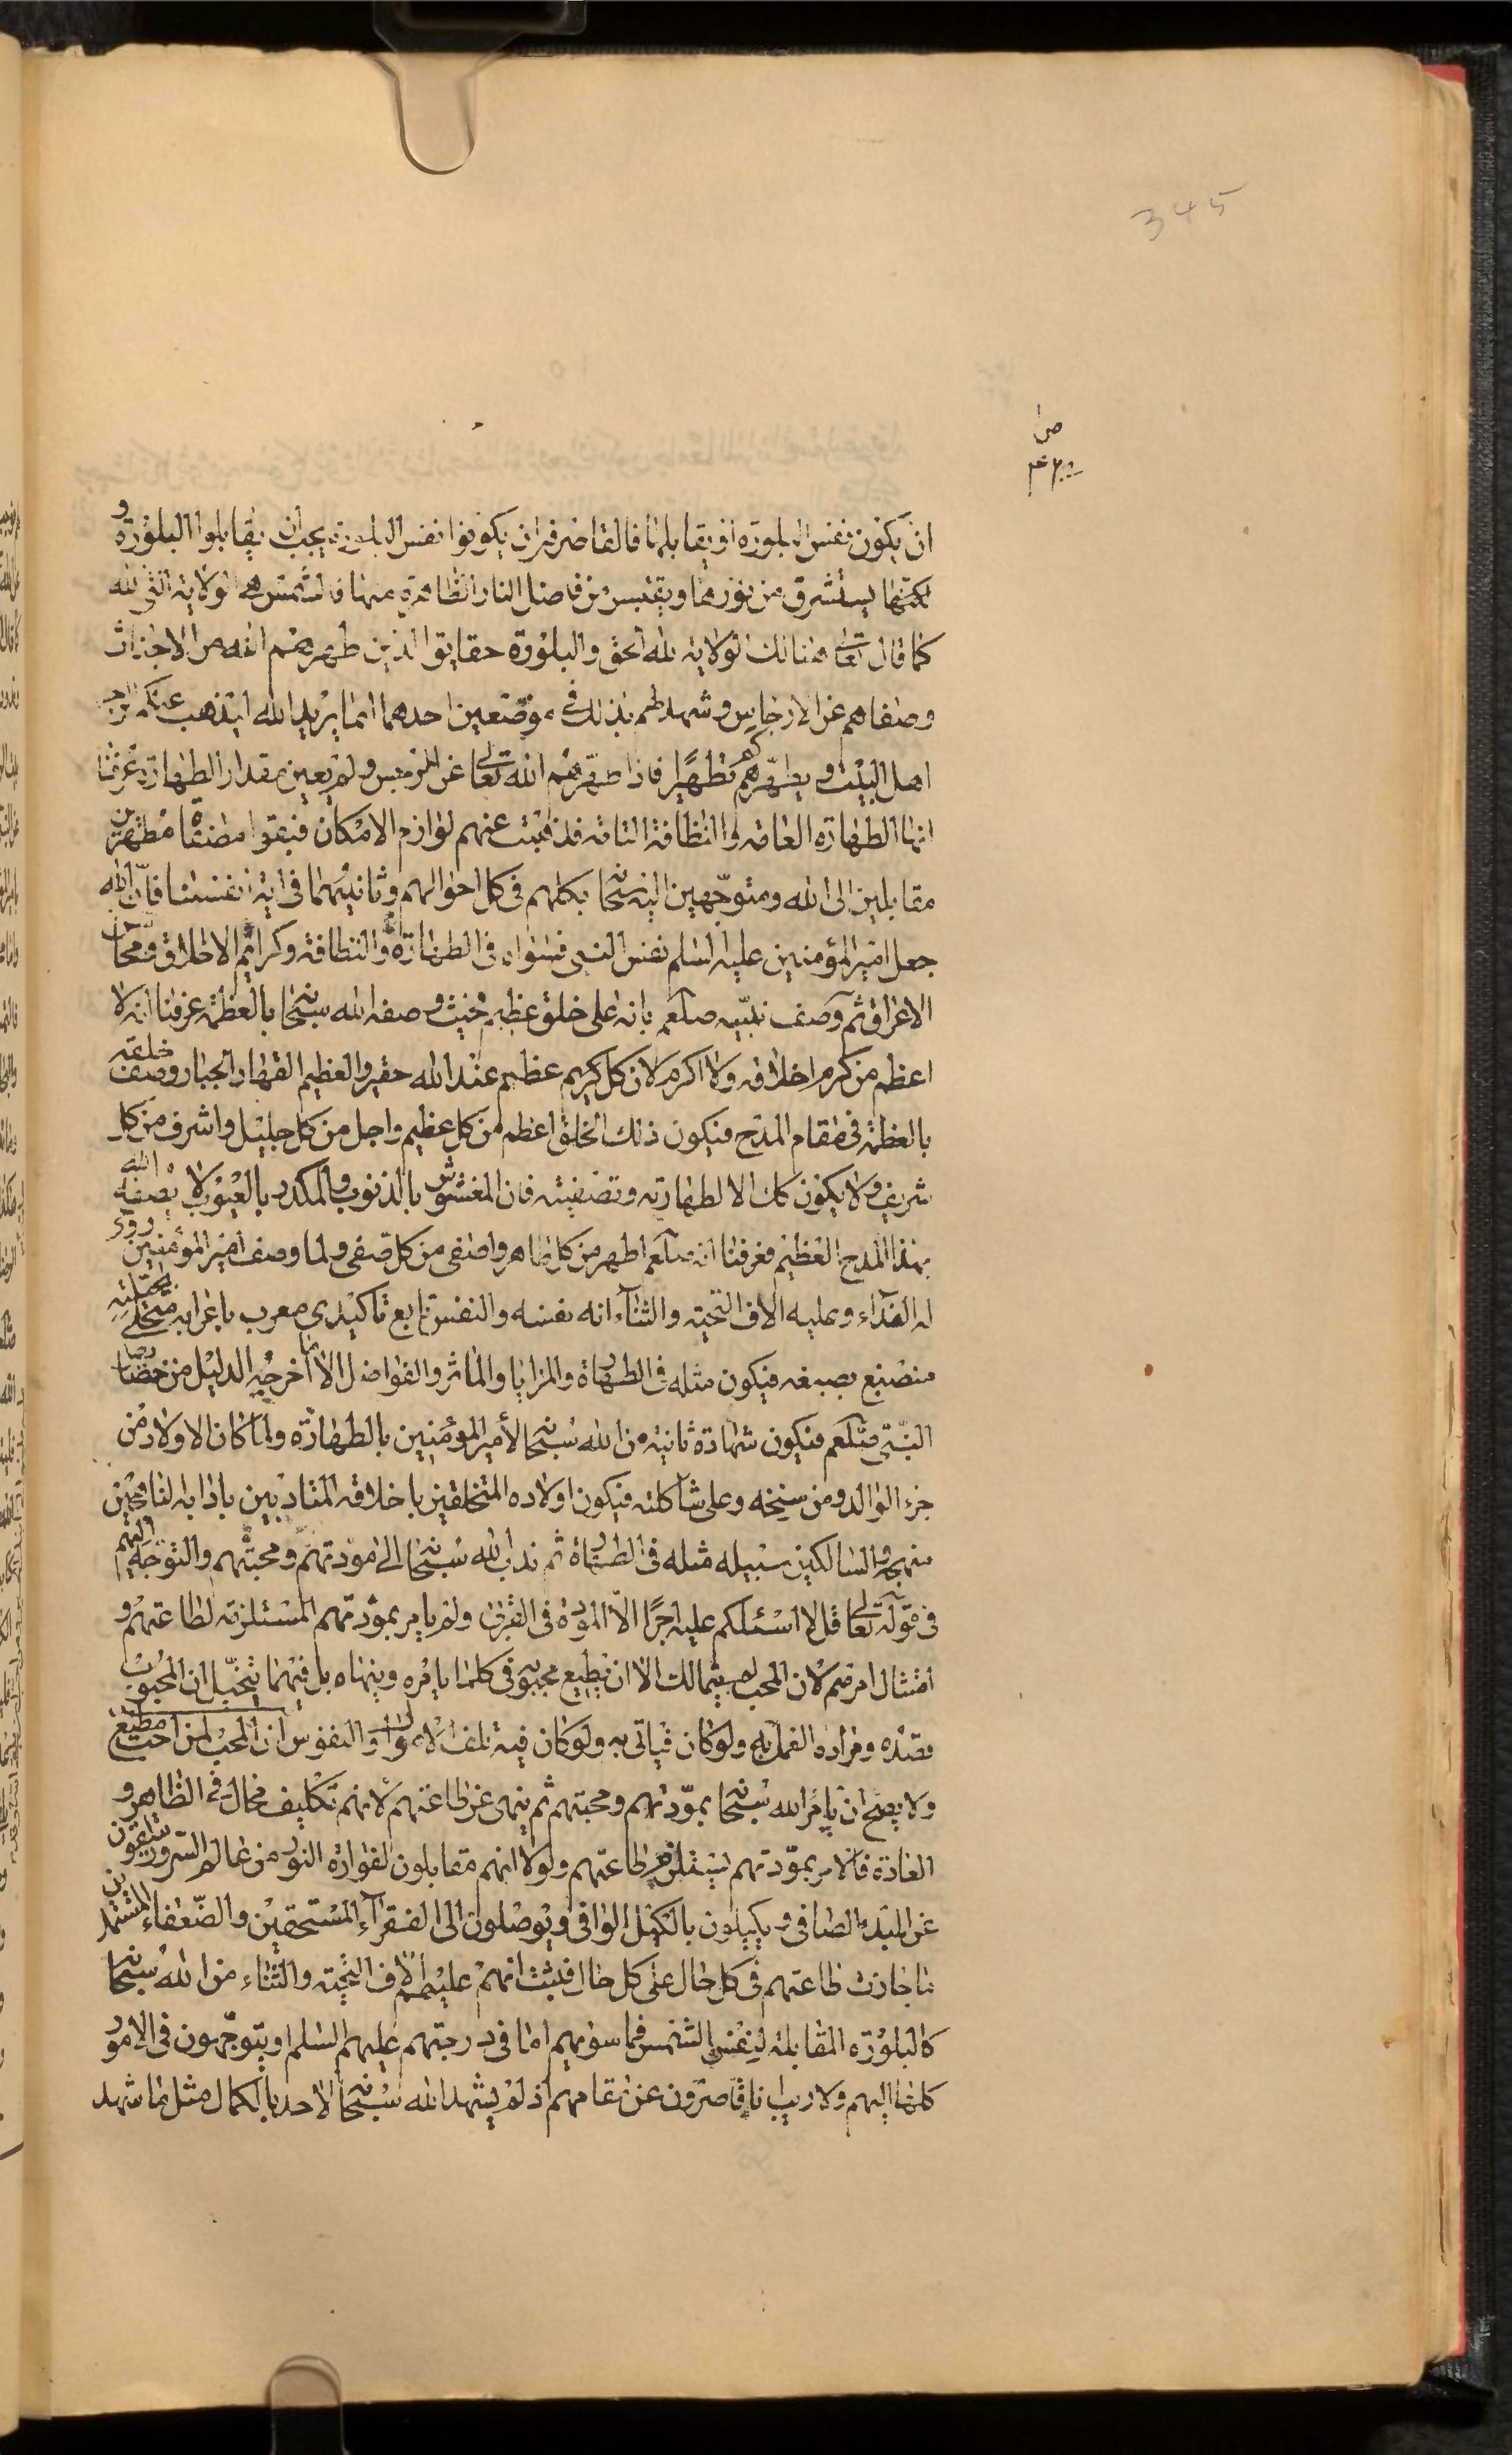 345
ان يكون نفس البلورة او يقابلها فالقاصرون ان يكونوا نفس البلورة يجب ان يقابلوا البلورة و
يكتبها يستشرق من نورها ويقتبس من فاضل النار الظاهرة منها فالشمس هي الولاية التي لله
كما قال تعالى هنالك الولاية لله الحق والبلورة حقايق الذين طهرهم الله من الاحداث
وصفاهم عن الارجاس وشهد لهم بذلك في موضعين احدهما انما يريد الله ليذهب عنكم الرجس
اهل البيت و يطهركم تطهيرا فاذا طهرهم الله تعالى عن الرجس ولم يعين مقدار الطهارة عرفنا
انها الطهارة العامة والنظافة التامة فذهبت عنهم لوازم الامكان فبقوا مصفاة مطهرين
مقابلين الى الله ومتوجهين اليه سبحانه بكلهم في كل احوالهم وثانيهما في اية انفسنا فان الله
جعل امير المؤمنين عليه السلم نفس النبي فسواه في الطهارة والنظافة وكرائم الاخلاق ومحاسن
الاعراق ثم وصف نبيه صلعم بانه على خلق عظيم فحيث وصفه الله سبحانه بالعظمة عرفنا انه لا
اعظم من كرم اخلاقه ولا اكرم لان كل كريم عظيم عند الله حقير والعظيم القهار الجبار وصف خلقه
بالعظمة في مقام المدح فيكون ذلك الخلق اعظم من كل عظيم واجل من كل جليل واشرف من كل
شريف ولا يكون كك الا لطهارته وتصفيته فان المغشوش بالذنوب والمكدر بالعيوب لا يصفه الله
بهذا المدح العظيم فعرفنا انه صلعم اطهر من كل طاهر واصفى من كل صفي ولما وصف امير المؤمنين روحي
له الفداء وعليه الاف التحية والثناء انه نفسه والنفس تابع تاكيدي معرب باعرابه متحلي بحليته
منصبغ بصبغه فيكون مثله في الطهارة والمزايا والمآثر والفواضل الا ما اخرجه الدليل من خصايص
النبي صلعم فيكون شهادة ثانية من الله سبحانه لأمير المؤمنين بالطهارة ولما كان الاولاد من
جزء الوالد ومن سنخه وعلى شاكلته فيكون اولاده المتخلقين باخلاقه المتادبين باذابه الناهجين
منهجه والسالكين سبيله مثله في الطهارة ثم ندب الله سبحانه الى مودتهم ومحبتهم والتوجه اليهم
في قوله تعالى قل لا اسئلكم عليه اجرا الا المودة في القربى ولم يامر بمودتهم المستلزمة لطاعتهم و
امتثال امرهم لان المحب لا يتمالك الا ان يطيع محبوبه في كلما يامره وينهاه بل فيهما يتخيل ان المحبوب
قصده ومراده العمل به ولو كان فياتي به ولو كان فيه تلف الاموال والنفوس ان المحب لمن احب مطيع
ولا يصح ان يامر الله سبحانه بمودتهم ومحبتهم ثم ينهى عن طاعتهم لانهم تكليف محال في الظاهر و
العادة فالامر بمودتهم يستلزم طاعتهم ولولا انهم مقابلون لفوارة النور من عالم السرور يتلقون
عن المبدء الصافي ويكيلون بالكيل الوافي ويوصلون الى الفقراء المستحقين والضعفاء المستمدين
ما جازت طاعتهم في كل حال على كل حال فثبت انهم عليهم الاف التحية والثناء من الله سبحانه
كالبلورة المقابلة لنفس الشمس فما سويهم اما في درجتهم عليهم السلم او يتوجهون في الامور
كلها اليهم ولا ريب انا قاصرون عن مقامهم اذ لم يشهد الله سبحانه لاحد بالكمال مثل ما شهد